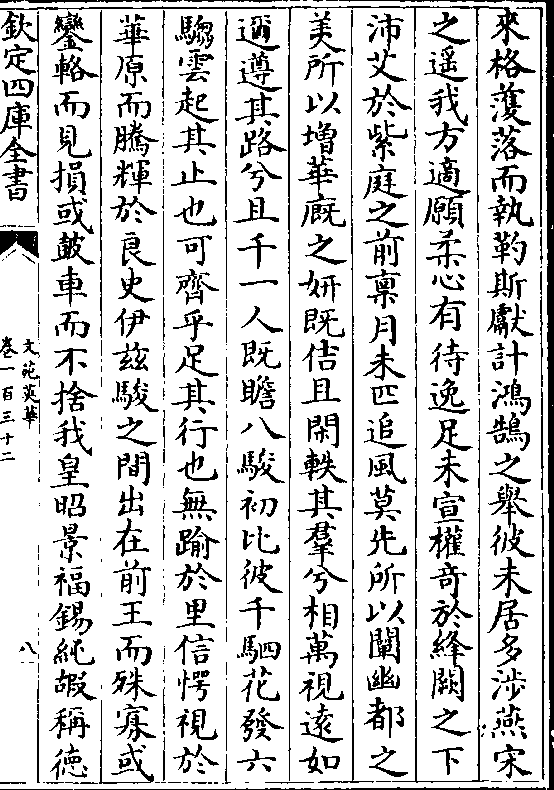 來格濩落而執靮斯獻計鴻鵠之舉彼未居多涉燕宋
之遥我方適願柔心有待逸足未宣權竒於絳闕之下
沛艾於紫庭之前稟月未匹追風莫先所以闡幽都之
美所以增華廐之妍既佶且閑軼其羣兮相萬視逺如
邇遵其路兮且千一人既瞻八駿初比彼千駟花發六
騶雲起其止也可齊乎足其行也無踰於里信愕視於
華原而騰輝於良史伊兹駿之間出在前王而殊寡或
鑾輅而見損或鼓車而不捨我皇昭景福錫純嘏稱德
欽定四庫全書
文苑英華
卷一百三十二
八